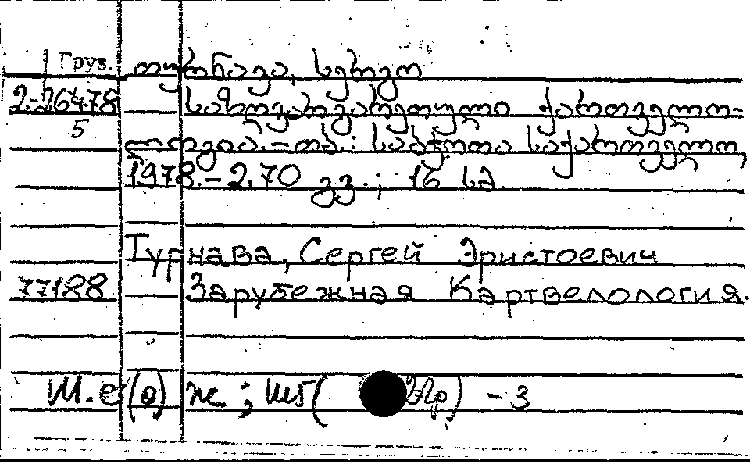 Груз. თურნავა, სერგო
2-26478 საზღვარგარეთული ქართველო-
5
ლოგია. - თბ.: საბჭოთა საქართველო,
1978. - 270 გვ.; 16 სმ
Турнава, Сергей Эристоевич
77188 Зарубежная Картвелология.
Ш.е(о)ж; Шб( Пр) - 3